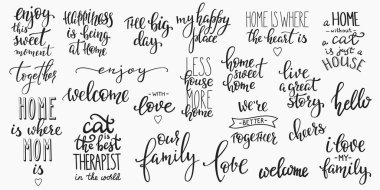 enjoy
this
sweet
moment
happiness
is being
at Home
THE big
day
my happy
place
HOME IS WHERE
the heart is
a HOME
without a
cat
is just a
HOUSE
together
enjoy
welcome
WITH
love
LESS
HOUSE
MORE
HOME
home
sweet
home
live
a great
story
hello
HOME
is where
MOM
is
cat
is the best
THERAPIST
in the world
our
family
love
we're
BETTER
TOGETHER
cheers
welcome
i love
MY
family